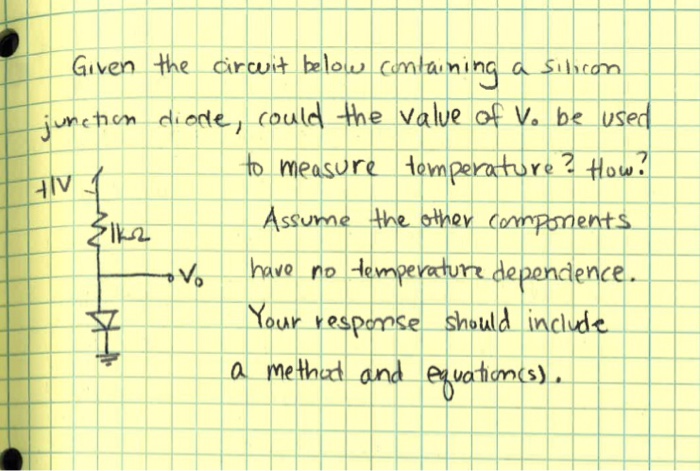 Given the circuit below containing a silicon
junction diode, could the value of Vo be used
to measure temperature? How?
+1V
Assume the other components
1kΩ
have no temperature dependence.
Vo
Your response should include
a method and equation(s).